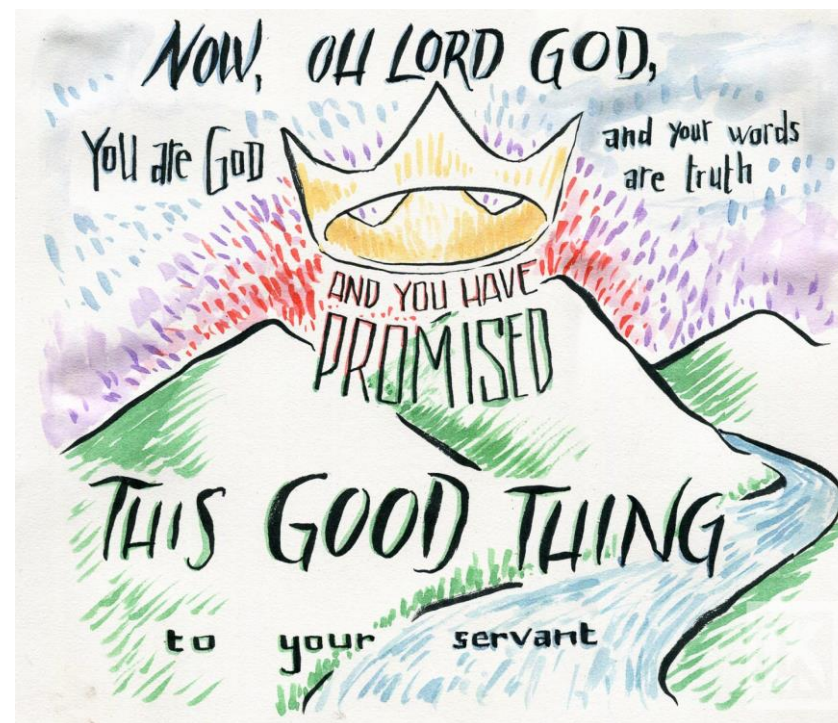 NOW, OH LORD GOD,
You are God
and your words
are truth
AND YOU HAVE
PROMISED
THIS GOOD THING
to your servant